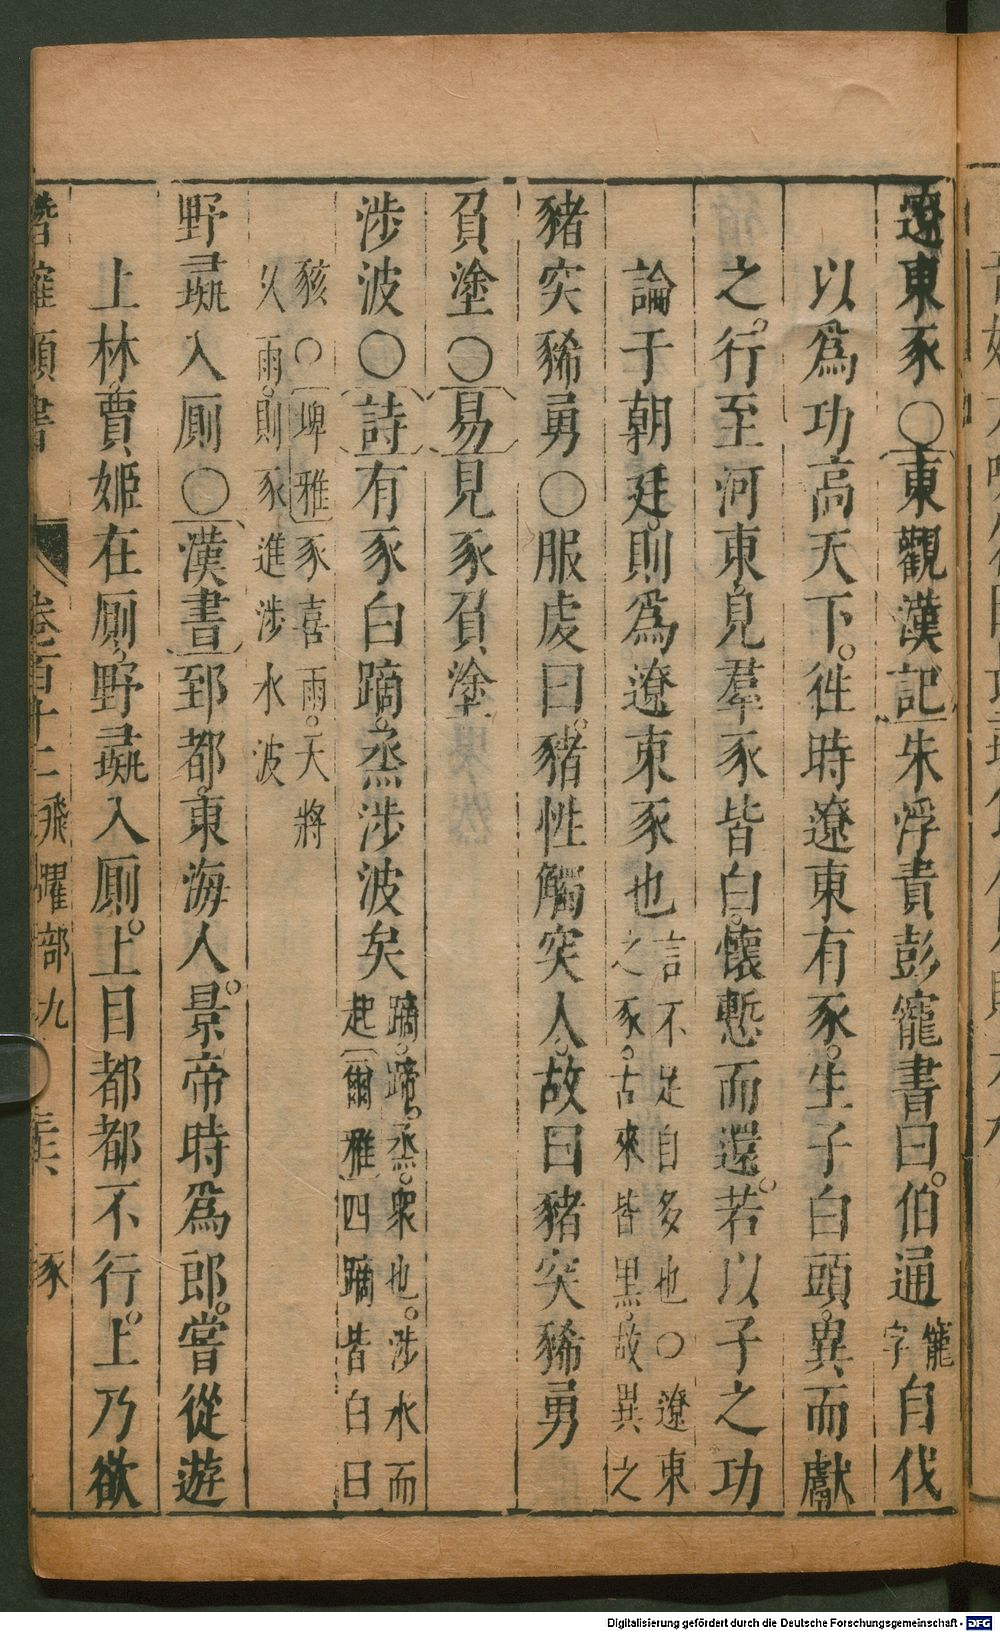 遼東豕〇東觀漢記朱浮責彭寵書曰。伯通寵字自伐
以爲功高天下。徃時遼東有豕。生子白頭。異而獻
之。行至河東見羣豕皆白。懷慙而還。若以子之功
論于朝廷。則爲遼東豕也言不足自多也〇遼東之豕。古來皆黑。故異之
豬突豨勇〇服虔曰。豬性觸突人。故曰豬突豨勇
負塗〇易見豕負塗
涉波〇詩有豕白蹢。烝涉波矣蹢。蹄。烝。衆也。涉水而起爾雅四蹢皆白曰
豥〇埤雅豕喜雨。天將久雨。則豕進涉水波
野彘入厠〇漢書郅都。東海人。景帝時爲郎。嘗從遊
上林。賈姬在厠。野彘入厠。上目都都不行。上乃欲
潛確類書 卷百十二 飛躍部九 豕
Digitalisierung gefördert durch die Deutsche Forschungsgemeinschaft - DFG